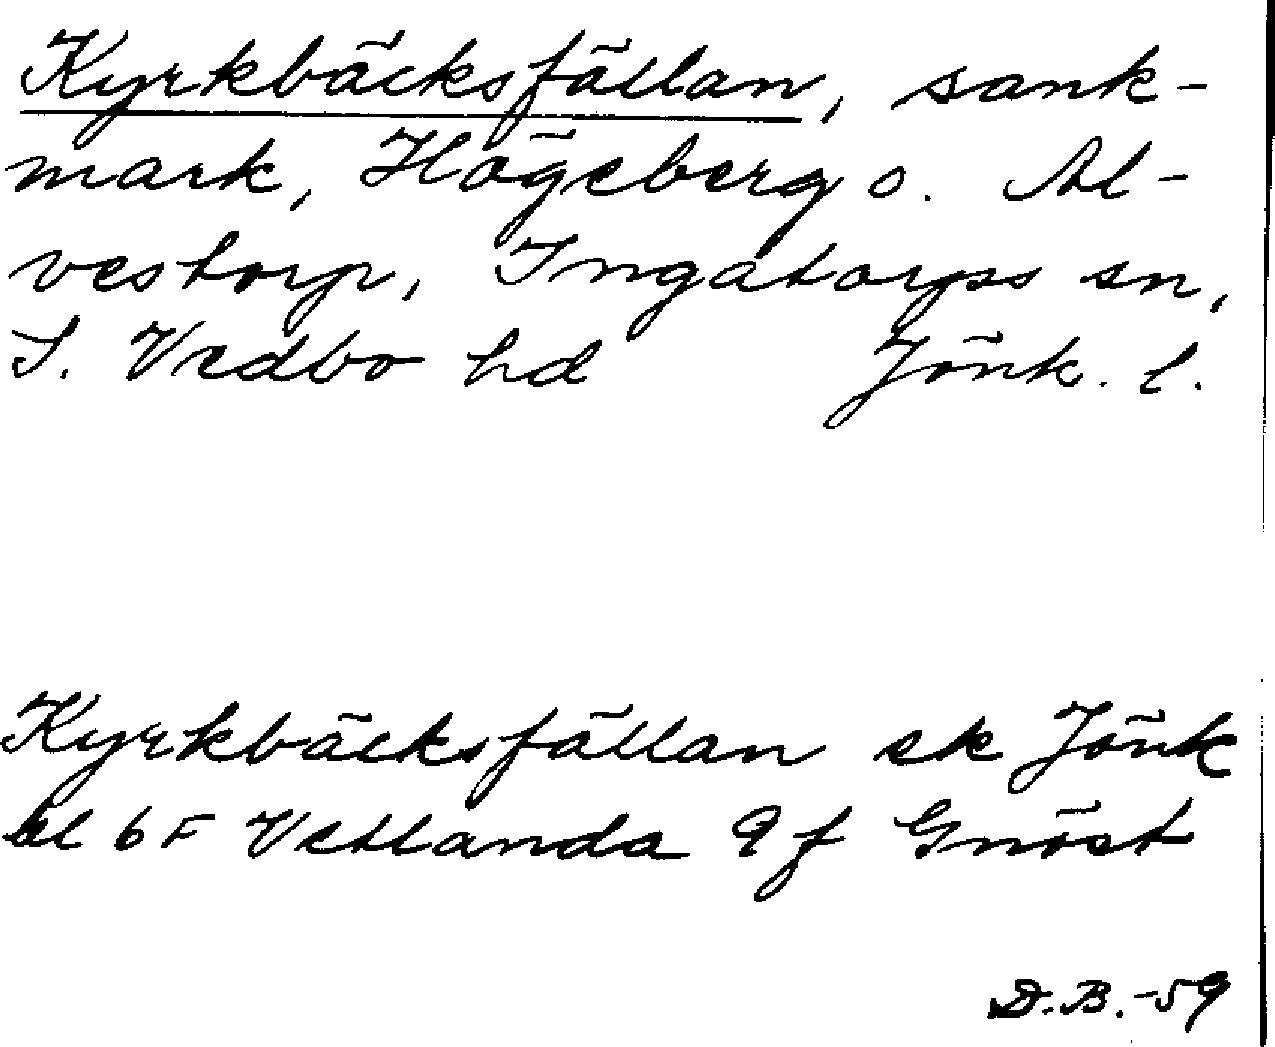 Kyrkbäcksfällan, sank-
mark, Högeberg o. Al-
vestorp, Ingatorps sn,
S. Vedbo hd Jönk. l.
Kyrkbäcksfällan ek Jönk
bl 6 F Vetlanda 9 f Gnöst
D.B.-59